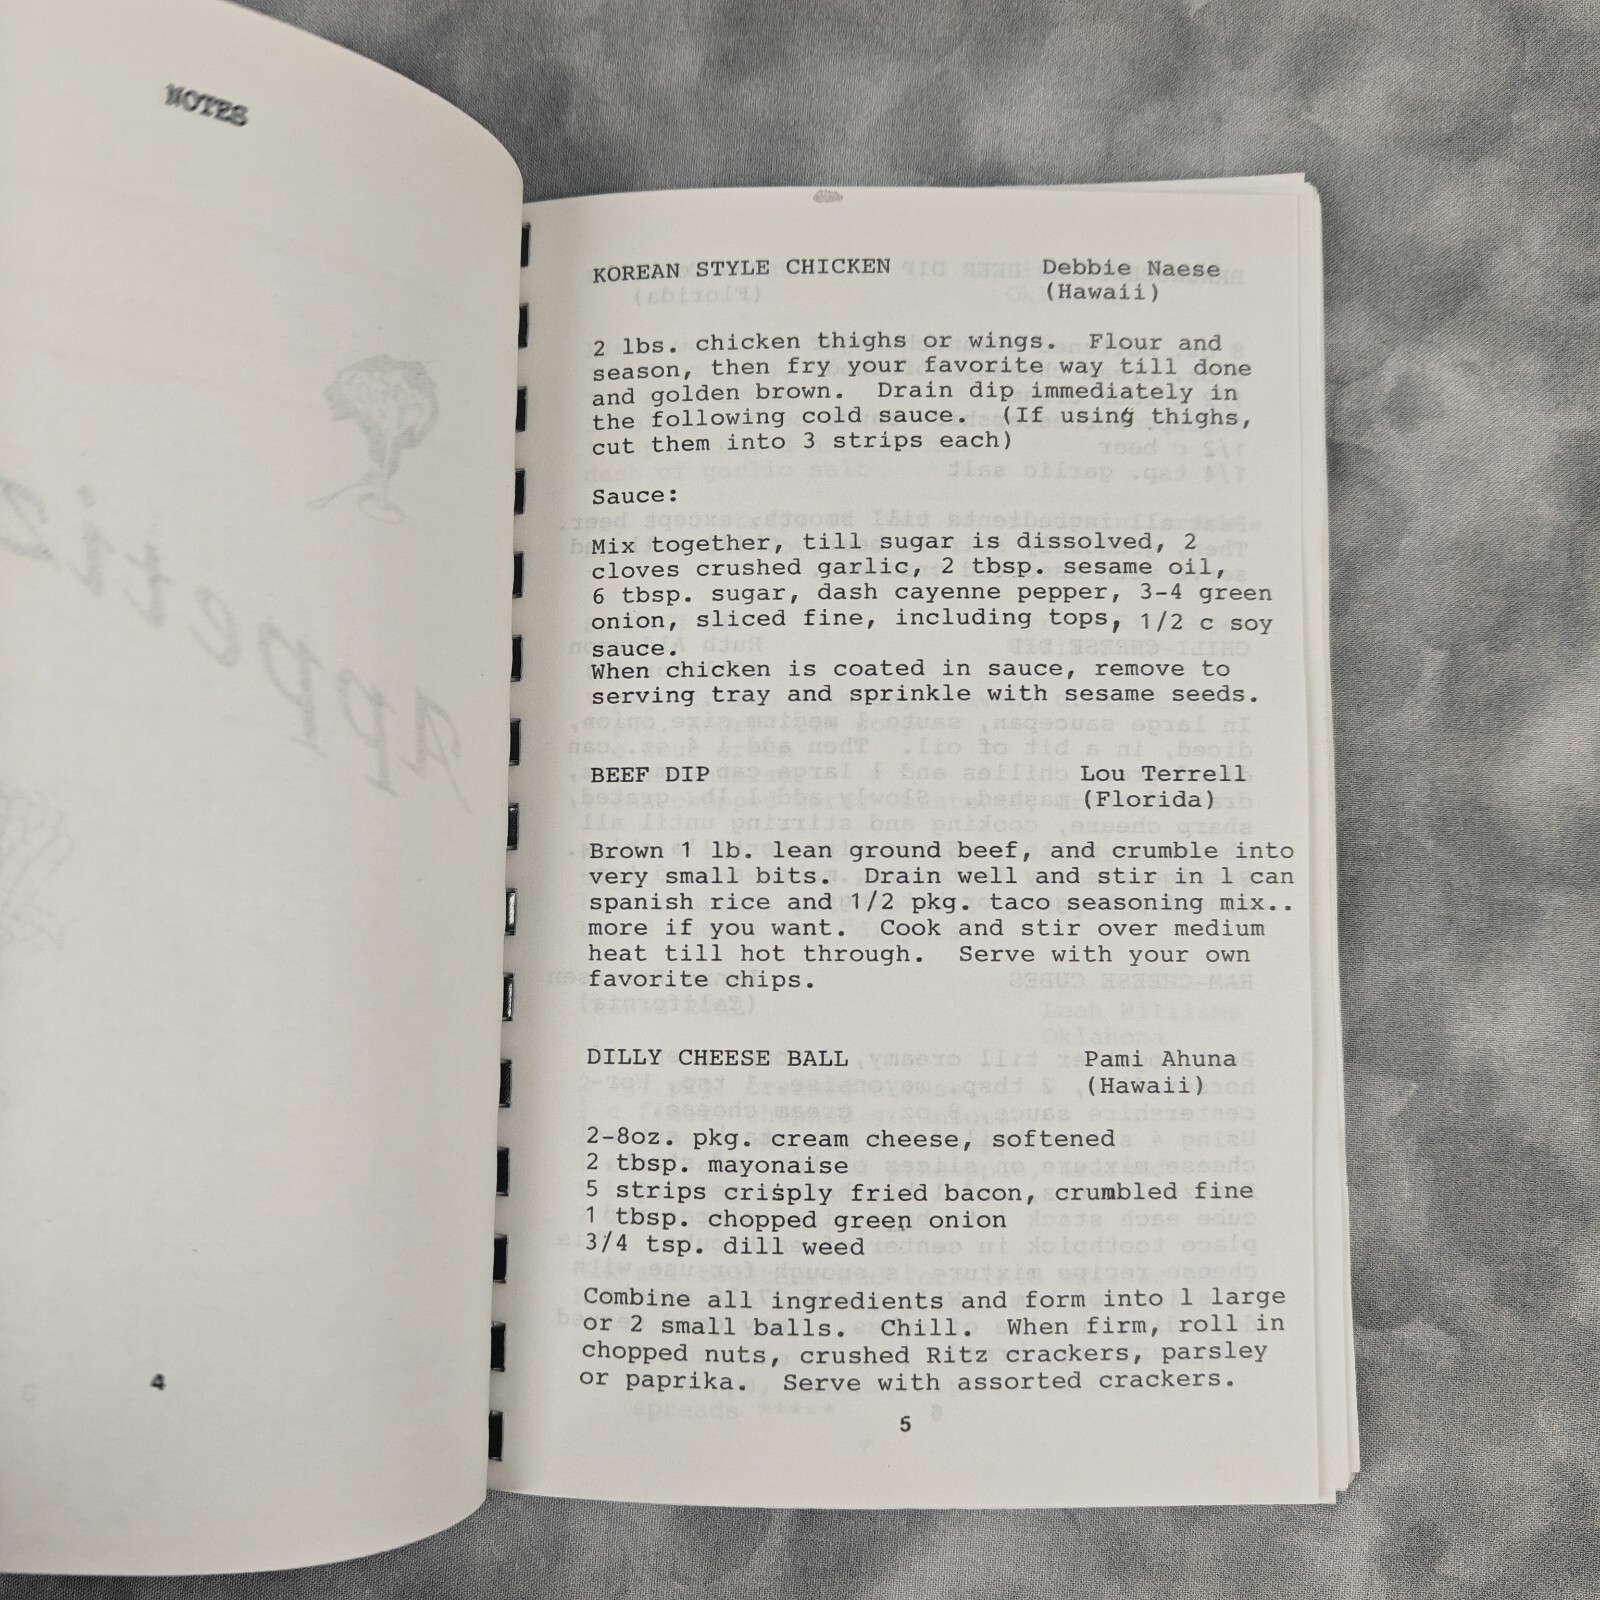 NOTES
4
KOREAN STYLE CHICKEN Debbie Naese
(Hawaii)
2 lbs. chicken thighs or wings. Flour and
season, then fry your favorite way till done
and golden brown. Drain dip immediately in
the following cold sauce. (If using thighs,
cut them into 3 strips each)
Sauce:
Mix together, till sugar is dissolved, 2
cloves crushed garlic, 2 tbsp. sesame oil,
6 tbsp. sugar, dash cayenne pepper, 3-4 green
onion, sliced fine, including tops, 1/2 c soy
sauce.
When chicken is coated in sauce, remove to
serving tray and sprinkle with sesame seeds.
BEEF DIP Lou Terrell
(Florida)
Brown 1 lb. lean ground beef, and crumble into
very small bits. Drain well and stir in 1 can
spanish rice and 1/2 pkg. taco seasoning mix..
more if you want. Cook and stir over medium
heat till hot through. Serve with your own
favorite chips.
DILLY CHEESE BALL Pami Ahuna
(Hawaii)
2-8oz. pkg. cream cheese, softened
2 tbsp. mayonaise
5 strips crisply fried bacon, crumbled fine
1 tbsp. chopped green onion
3/4 tsp. dill weed
Combine all ingredients and form into 1 large
or 2 small balls. Chill. When firm, roll in
chopped nuts, crushed Ritz crackers, parsley
or paprika. Serve with assorted crackers.
5